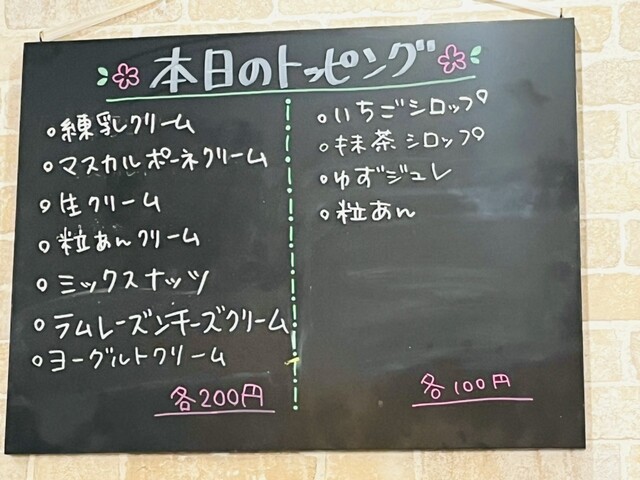 本日のトッピング
○練乳クリーム
○マスカルポーネクリーム
○生クリーム
○粒あんクリーム
○ミックスナッツ
○ラムレーズンチーズクリーム
○ヨーグルトクリーム
各200円
○いちごシロップ
○抹茶シロップ
○ゆずジュレ
○粒あん
各100円